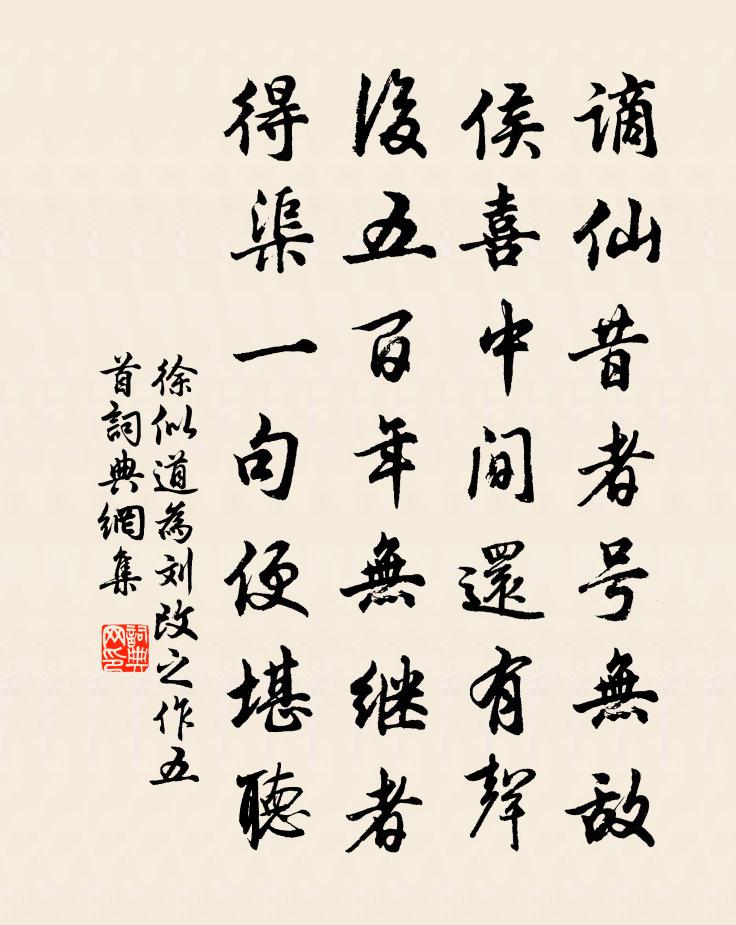 谪仙昔者号無敌
侯喜中间還有聲
後五百年無继者
得渠一句便堪聽
徐似道為刘改之作五
首詞典網集
詞典網印